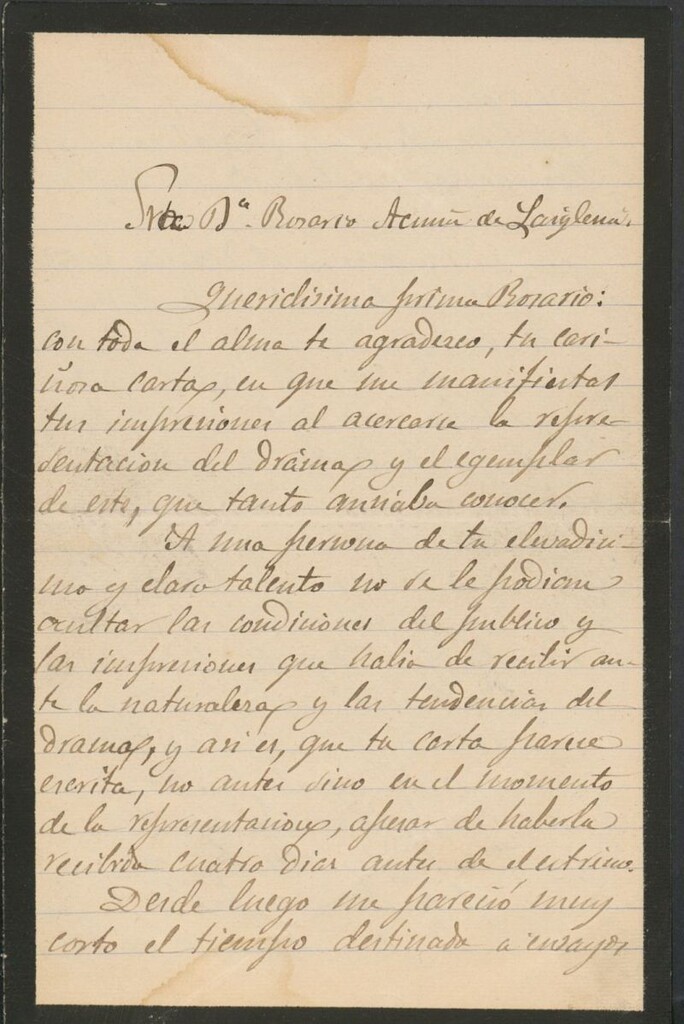 Srta Dª. Rosario Acuña de Laiglesia.
Queridisima prima Rosario:
con toda el alma te agradezco, tu cari-
ñosa carta, en que me manifiestas
tus impresiones al acercarse la repre-
sentacion del drama y el egemplar
de este, que tanto ansiaba conocer.
A una persona de tu elevadisi-
mo y claro talento no se le podian
ocultar las condiciones del publico y
las impresiones que habia de recibir an-
te la naturaleza y las tendencias del
drama, y asi es, que tu carta parece
escrita, no antes sino en el momento
de la representacion, apesar de haberla
recibido cuatro dias antes de el estreno.
Desde luego me pareció muy
corto el tiempo destinado a ensayos